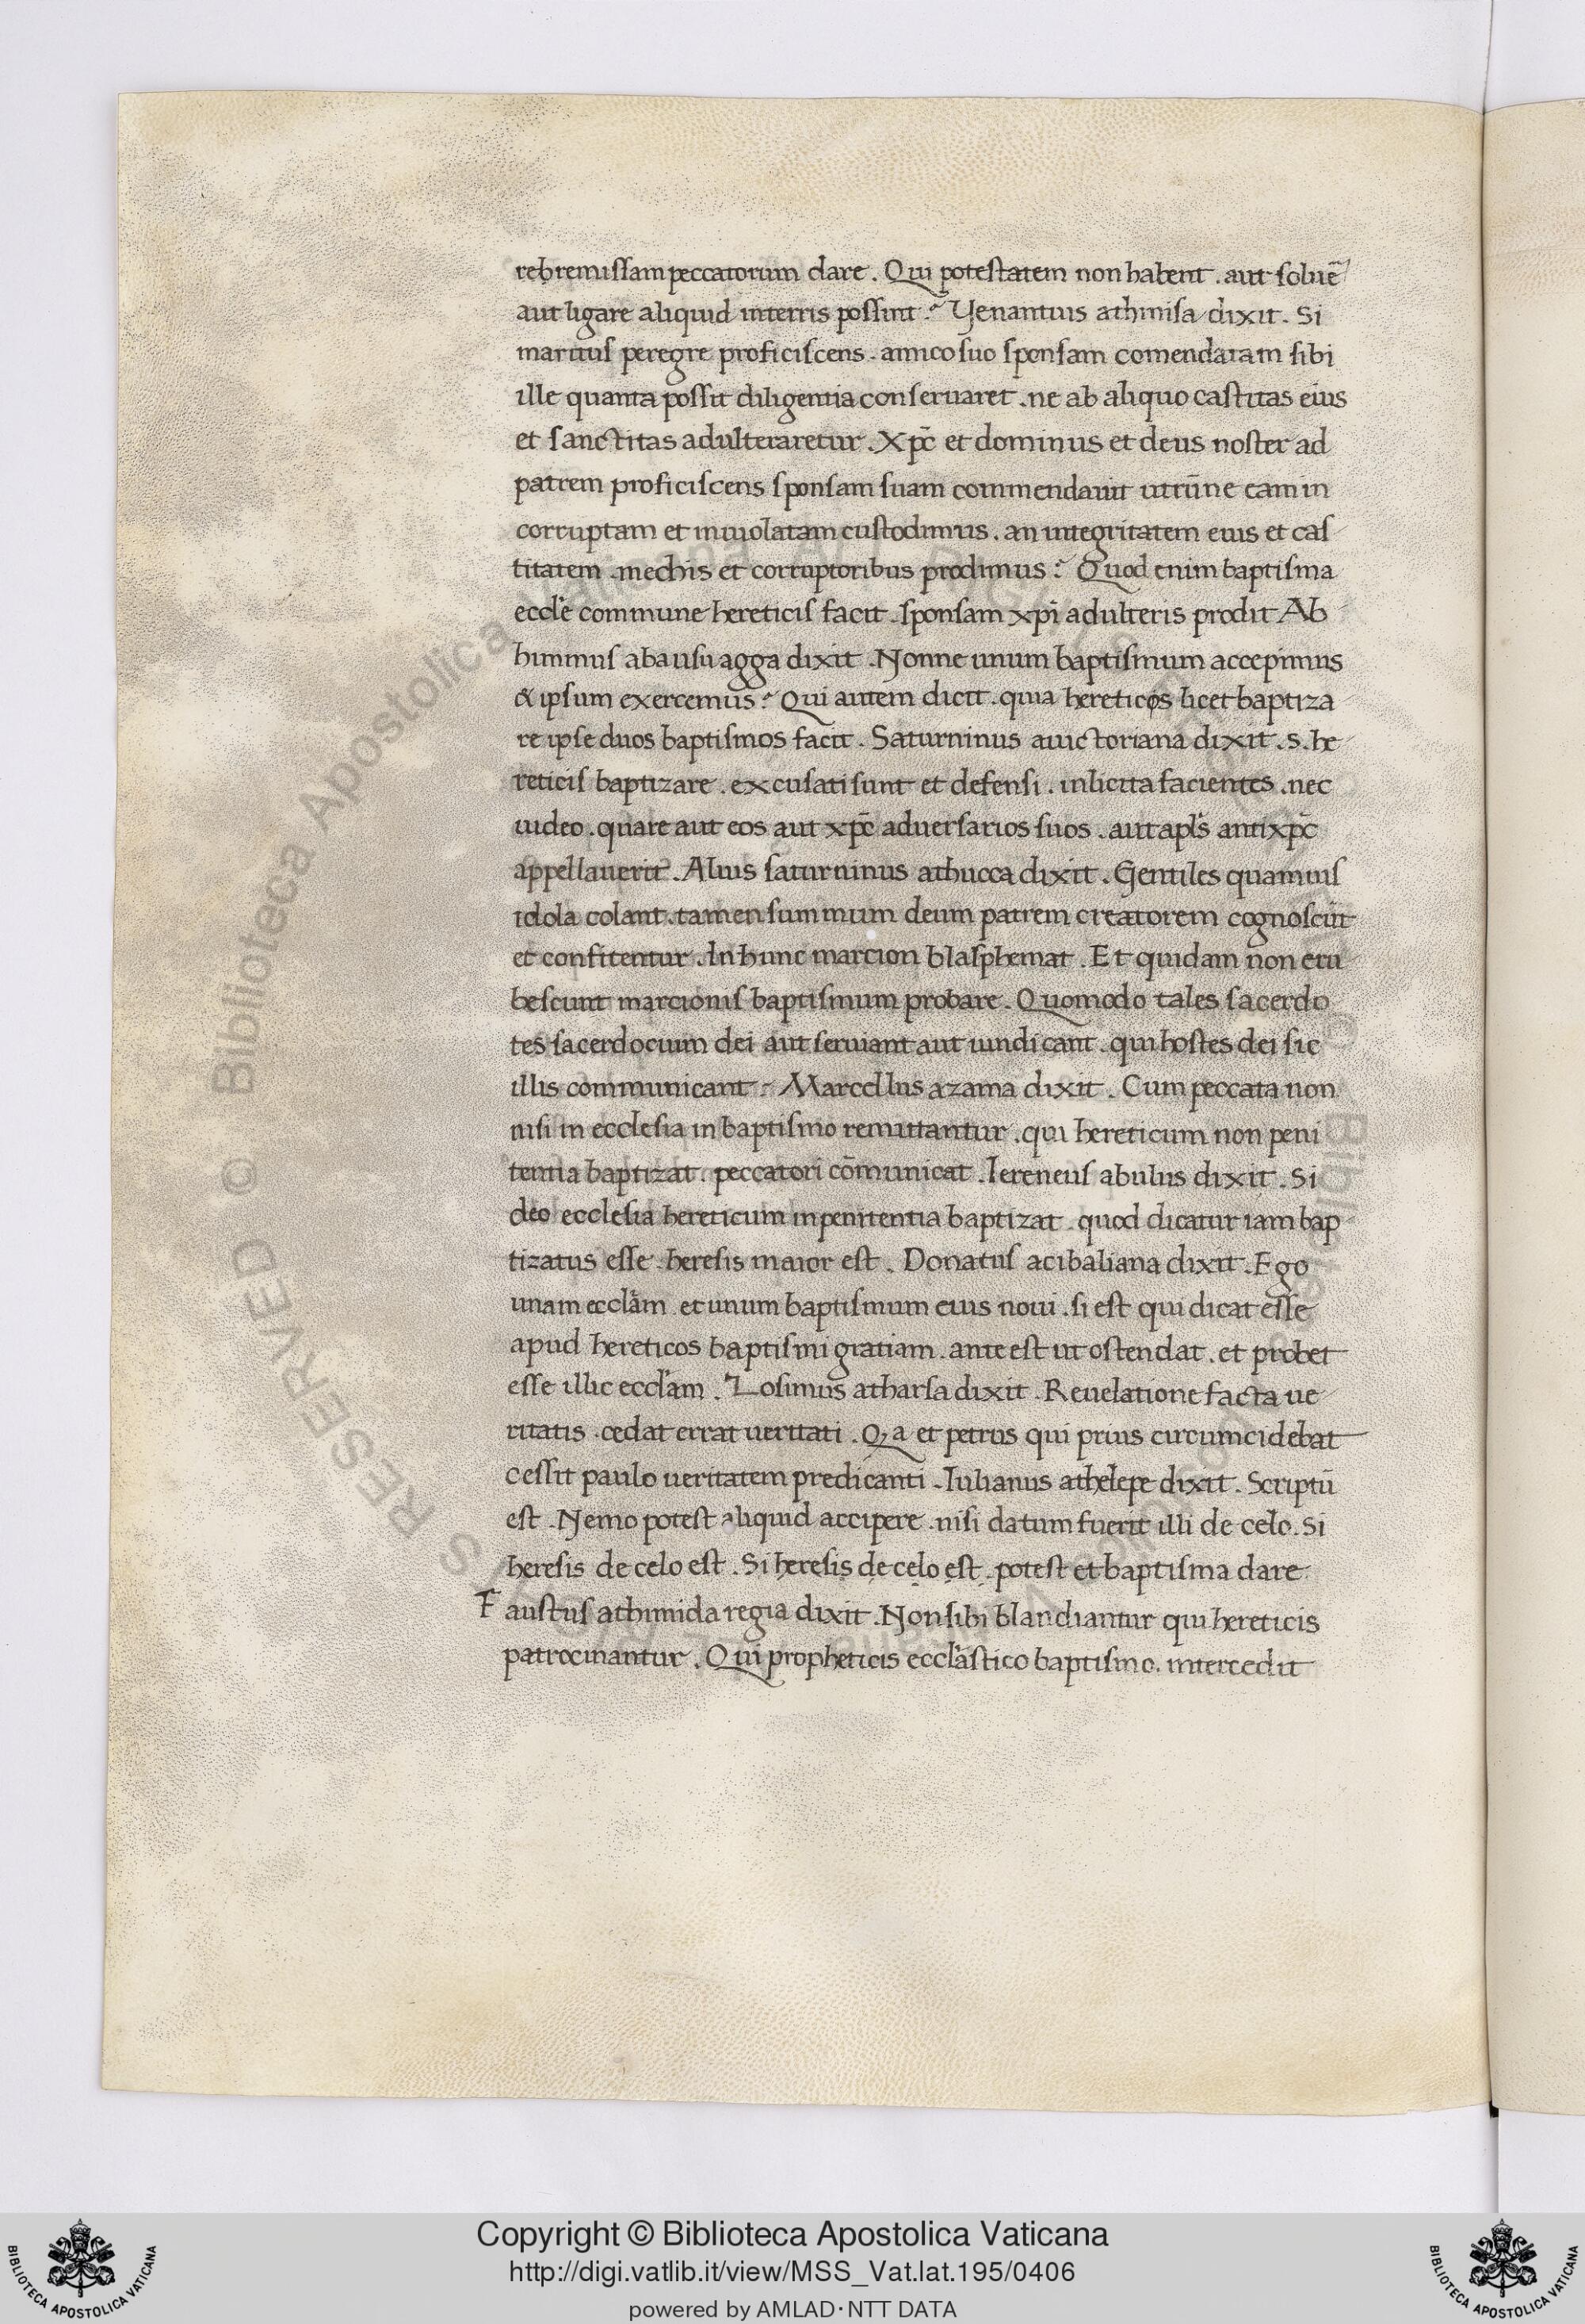 reb remissam peccatorum dare . Qui potestatem non habent . aut soluē
aut ligare aliquid interris possint ? Venantius athinisa dixit . Si
maritus peregre proficiscens . amico suo sponsam comendaram sibi
ille quanta possit diligentia conseruaret . ne ab aliquo castitas eius
et sanctitas adulteraretur . Xpc̄ et dominus et deus noster ad
patrem proficiscens sponsam suam commendauit utrūne eam in
corruptam et inuiolatam custodimus . an integritatem eius et cas
titatem . mechis et corruptoribus prodimus ? Quod enim baptisma
eccle̅ commune hereticis facit . sponsam xpi̅ adulteris prodit Ab
himmus abausuagga dixit . Nonne unum baptismum accepimus
& ipsum exercemus ? Qui autem dicit . quia hereticos licet baptiza
re ipse duos baptismos facit . Saturninus auictoriana dixit . s . he
reticis baptizare . excusati sunt et defensi . inlicita facientes . nec
uideo . quare aut eos aut xpc̄ aduersarios suos . aut apls̅ antixpc̄
appellauerit . Alius saturninus athucca dixit . Gentiles quamuis
idola colant . tamen summum deum patrem creatorem cognoscūt
et confitentur . In hunc marcion blasphemat . Et quidam non eru
bescunt marcionis baptismum probare . Quomodo tales sacerdo
tes sacerdocium dei aut seruiant aut iundicant . qui hostes dei sic
illis communicant ? Marcellus azama dixit . Cum peccata non
nisi in ecclesia in baptismo remittantur . qui hereticum non peni
tentia baptizat . peccatori cōmunicat . Iereneus abulus dixit . Si
deo ecclesia hereticum inpenitentia baptizat . quod dicatur iam bap
tizatus esse . heresis maior est . Donatus acibaliana dixit . Ego
unam eccla̅m et unum baptismum eius noui . si est qui dicat esse
apud hereticos baptismi gratiam . ante est ut ostendat . et probet
esse illic eccla̅m . Zosimus atharsa dixit . Reuelatione facta ue
ritatis . cedat errat ueritati . Q,a et petrus qui prius circumcidebat
cessit paulo ueritatem predicanti . Iulianus athelepe dixit . Scriptū
est . Nemo potest aliquid accipere . nisi datum fuerit illi de celo . Si
heresis de celo est . Si heresis de celo est . potest et baptisma dare
Faustus athimida regia dixit . Non sibi blandiantur qui hereticis
patrocinantur . Qui propheticis eccla̅stico baptismo . intercedit
Copyright © Biblioteca Apostolica Vaticana
http://digi.vatlib.it/view/MSS_Vat.lat.195/0406
powered by AMLAD·NTT DATA
BIBLIOTECA APOSTOLICA VATICANA
BIBLIOTECA APOSTOLICA VATICANA